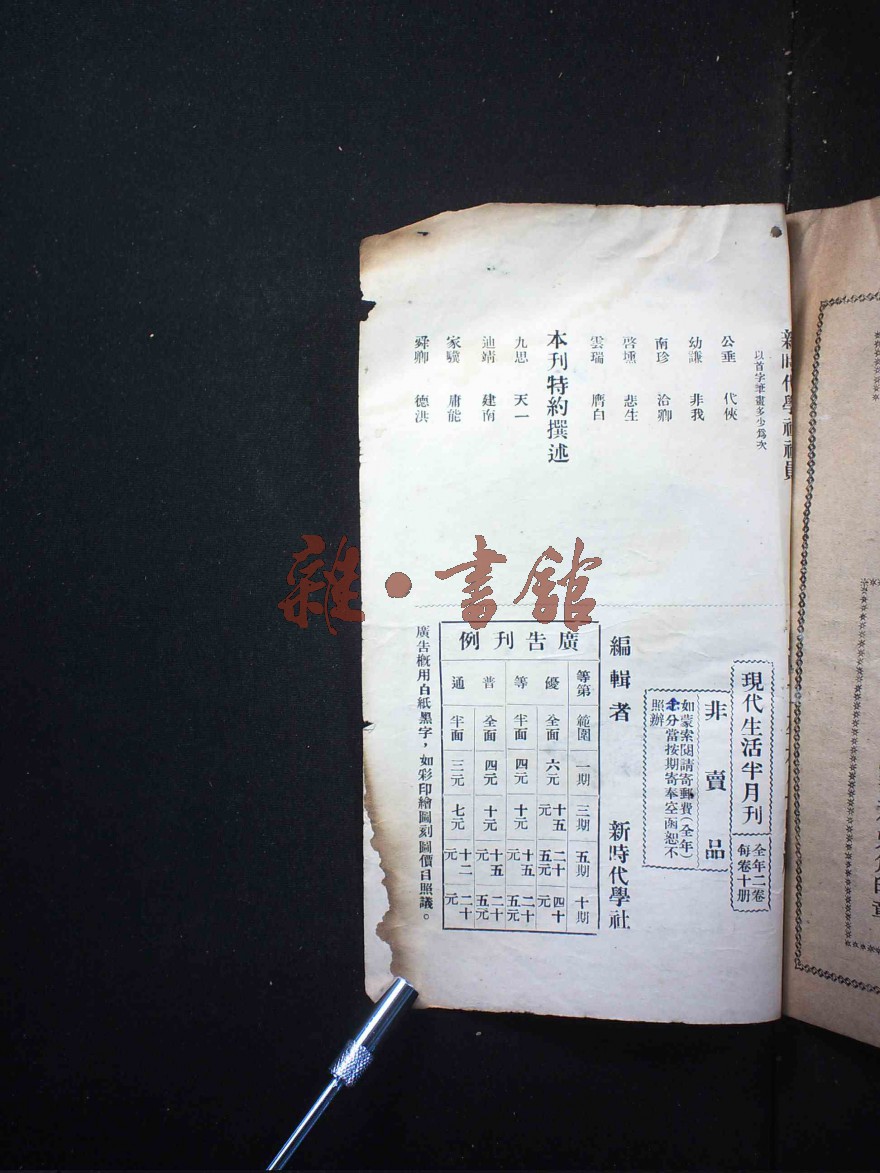 新時代學社社員
以首字筆畫多少爲次
公垂 代俠
幼謙 非我
南珍 洽卿
啓壎 悲生
雲瑞 膺白
本刊特約撰述
九思 天一
迪靖 建南
家驥 庸能
舜卿 德洪
現代生活半月刊
全年二卷
每卷十册
非賣品
如蒙索閱請寄郵費(全年)
分當按期寄奉空函恕不
照辦
編輯者 新時代學社
廣告刊例
等第 範圍 一期 三期 五期 十期
優等 全面 六元 十五元 二十五元 四十元
半面 四元 十元 十五元 二十五元
普通 全面 四元 十元 十五元 二十五元
半面 三元 七元 十二元 二十元
廣告概用白紙黑字，如彩印繪圖刻圖價目照議。
雜·書館